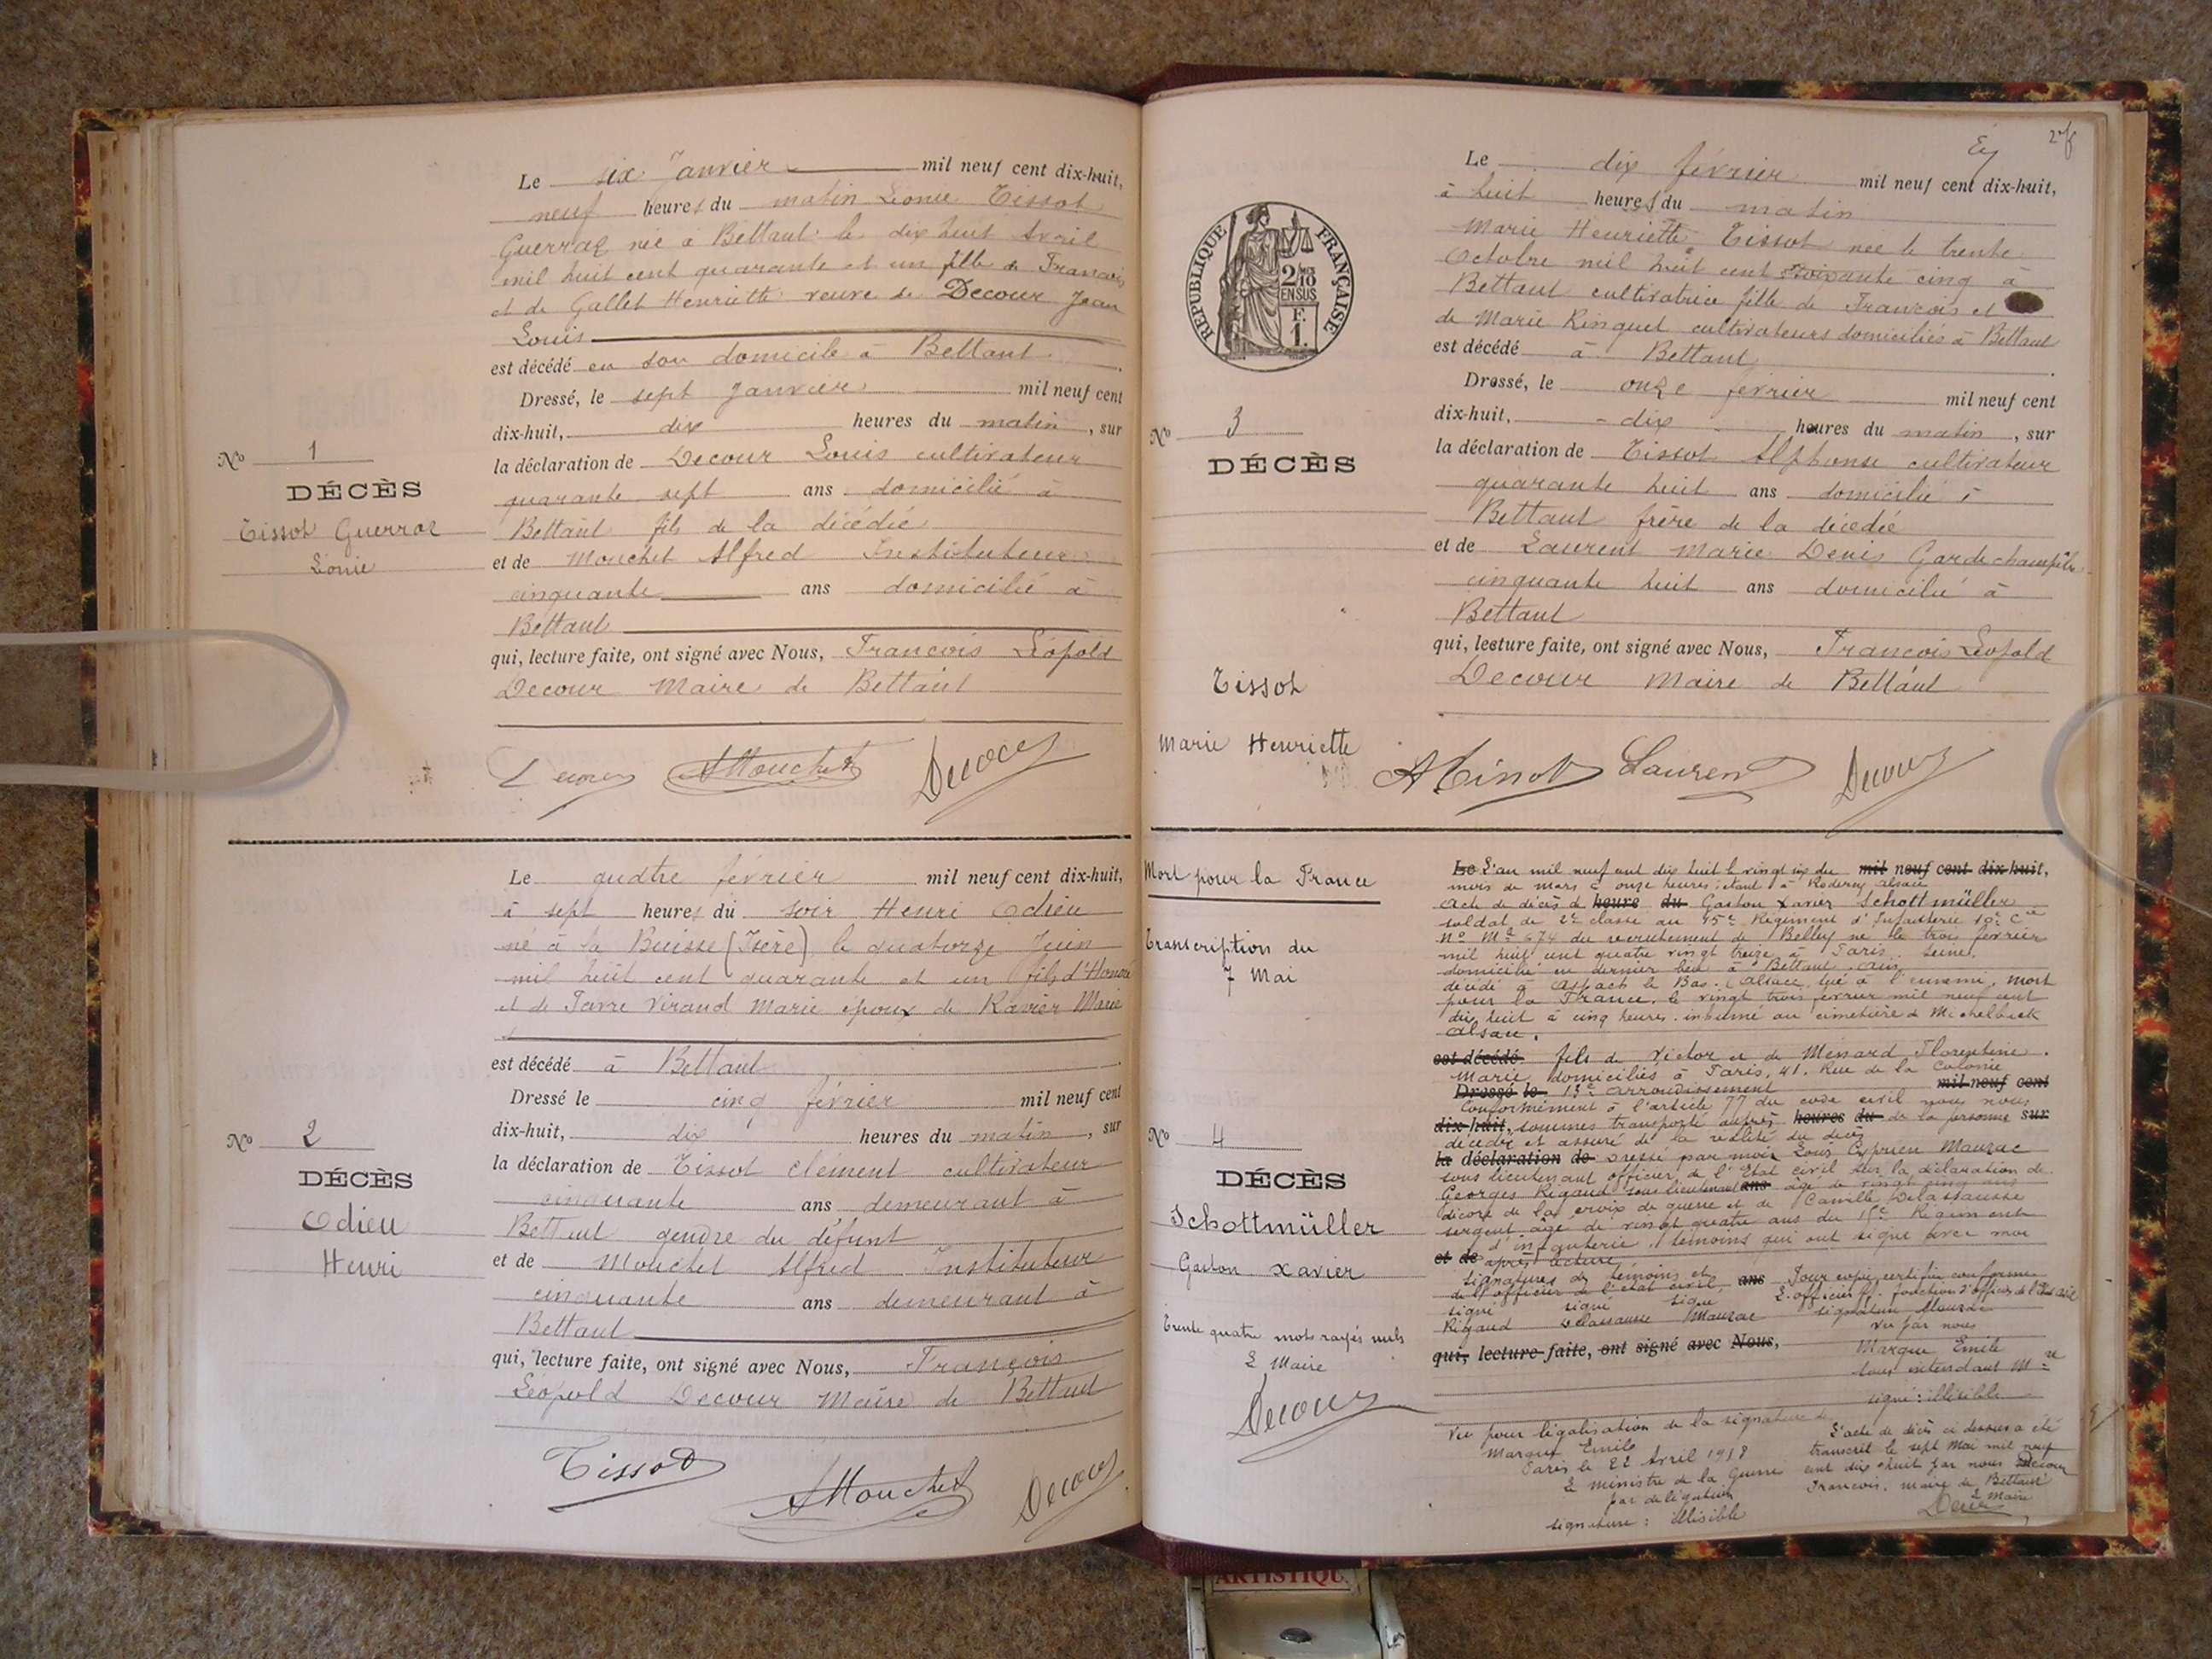 Le six Janvier mil neuf cent dix-huit,
neuf heures du matin Léonie Tissot
Guerraz née à Bettant le dix huit Avril
mil huit cent quarante et un fille de Francois
et de Gallet Henriette veuve de Decour Jean
Louis
est décédé en son domicile à Bettant.
Dressé, le sept Janvier mil neuf cent
dix-huit, dix heures du matin, sur
la déclaration de Decour Louis cultivateur
quarante sept ans domicilié à
Bettant fils de la décédée
et de Mouchet Alfred Instituteur
cinquante ans domicilié à
Bettant
qui, lecture faite, ont signé avec Nous, Francois Léopold
Decour Maire de Bettant
Nº 1
DÉCÈS
Tissot Guerraz
Léonie
AMouchet Decour
Le quatre février mil neuf cent dix-huit,
à sept heures du soir Henri Odieu
né à la Buisse (Isère) le quatorze Juin
mil huit cent quarante et un fils d'Honoré
et de Favre Viraud Marie époux de Ravier Marie
est décédé à Bettant.
Dressé le cinq février mil neuf cent
dix-huit, dix heures du matin, sur
la déclaration de Tissot clément cultivateur
cinquante ans demeurant à
Bettant gendre du défunt
et de Mouchet Alfred Instituteur
cinquante ans demeurant à
Bettant
qui, lecture faite, ont signé avec Nous, François
Léopold Decour Maire de Bettant
Nº 2
DÉCÈS
Odieu
Henri
Tissot
AMouchet Decour
Le dix février mil neuf cent dix-huit,
à huit heures du matin
Marie Henriette Tissot née le trente
Octobre mil huit cent soixante cinq à
Bettant cultivatrice fille de François et
de Marie Rinquet cultivateurs domiciliés à Bettant
est décédé à Bettant.
Dressé, le onze février mil neuf cent
dix-huit, dix heures du matin, sur
la déclaration de Tissot Alphonse cultivateur
quarante huit ans domicilié à
Bettant frère de la décédée
et de Laurent Marie Denis Garde champêtre
cinquante huit ans domicilié à
Bettant
qui, lecture faite, ont signé avec Nous, Francois Léopold
Decour Maire de Bettant
RÉPUBLIQUE FRANÇAISE
2/10
EN SUS
F.
1.
Nº 3
DÉCÈS
Tissot
Marie Henriette
ATissot Laurent Decour
Mort pour la France
Transcription du
7 Mai
Nº 4
DÉCÈS
Schottmüller
Gaston Xavier
Trente quatre mots rayés nuls
Le Maire
Decour
Le L'an mil neuf cent dix huit le vingt six du mil neuf cent dix-huit,
mois de mars à onze heures, étant à Roderen Alsace
Acte de décès de heure du Gaston Xavier Schottmüller
soldat de 2e classe au 15e Régiment d'Infanterie 10e Cie
Nº Mle 674 du recrutement de Belley né le trois février
mil huit cent quatre vingt treize à Paris. Seine.
domicilié en dernier lieu à Bettant, Ain
décédé à Aspach le Bas. (Alsace, tué à l'ennemi, mort
pour la France, le vingt trois février mil neuf cent
dix huit à cinq heures. inhumé au cimetière de Michelbach
Alsace.
est décédé fils de Victor et de Menard Florentine.
Marie domiciliés à Paris, 41. Rue de la Colonie
Dressé le 13e arrondissement mil neuf cent
Conformément à l'article 77 du code civil nous nous
dix-huit, sommes transporté auprès heures du de la personne sur
décédée et assuré de la réalité du décès
la déclaration de Dressé par moi Louis Cyprien Mauzac
sous lieutenant officier de l'Etat civil sur la déclaration de
Georges Rigaud sous lieutenant ans âgé de vingt cinq ans
décoré de la croix de guerre et de Camille Delassausse
sergent âgé de vingt quatre ans du 15e Régiment
d'infanterie. témoins qui ont signé avec moi
et de après lecture
Signatures des témoins et ans Pour copie certifiée conforme
de l'officier de l'état civil, L'officier ff. fonction d'officier de l'état civil
signé signé signé signature Mauzac
Rigaud Delassausse Mauzac Vu par nous
qui, lecture faite, ont signé avec Nous, Marque Emile
sous intendant Mre
signé: illisible
Vu pour légalisation de la signature de
Marque Emile
Paris le 22 Avril 1918
Le ministre de la Guerre
par délégation
signature: illisible
L'acte de décès ci dessus a été
transcrit le sept Mai mil neuf
cent dix-huit par nous Decour
Francois, maire de Bettant
Le Maire
Decour
ARTISTIQU